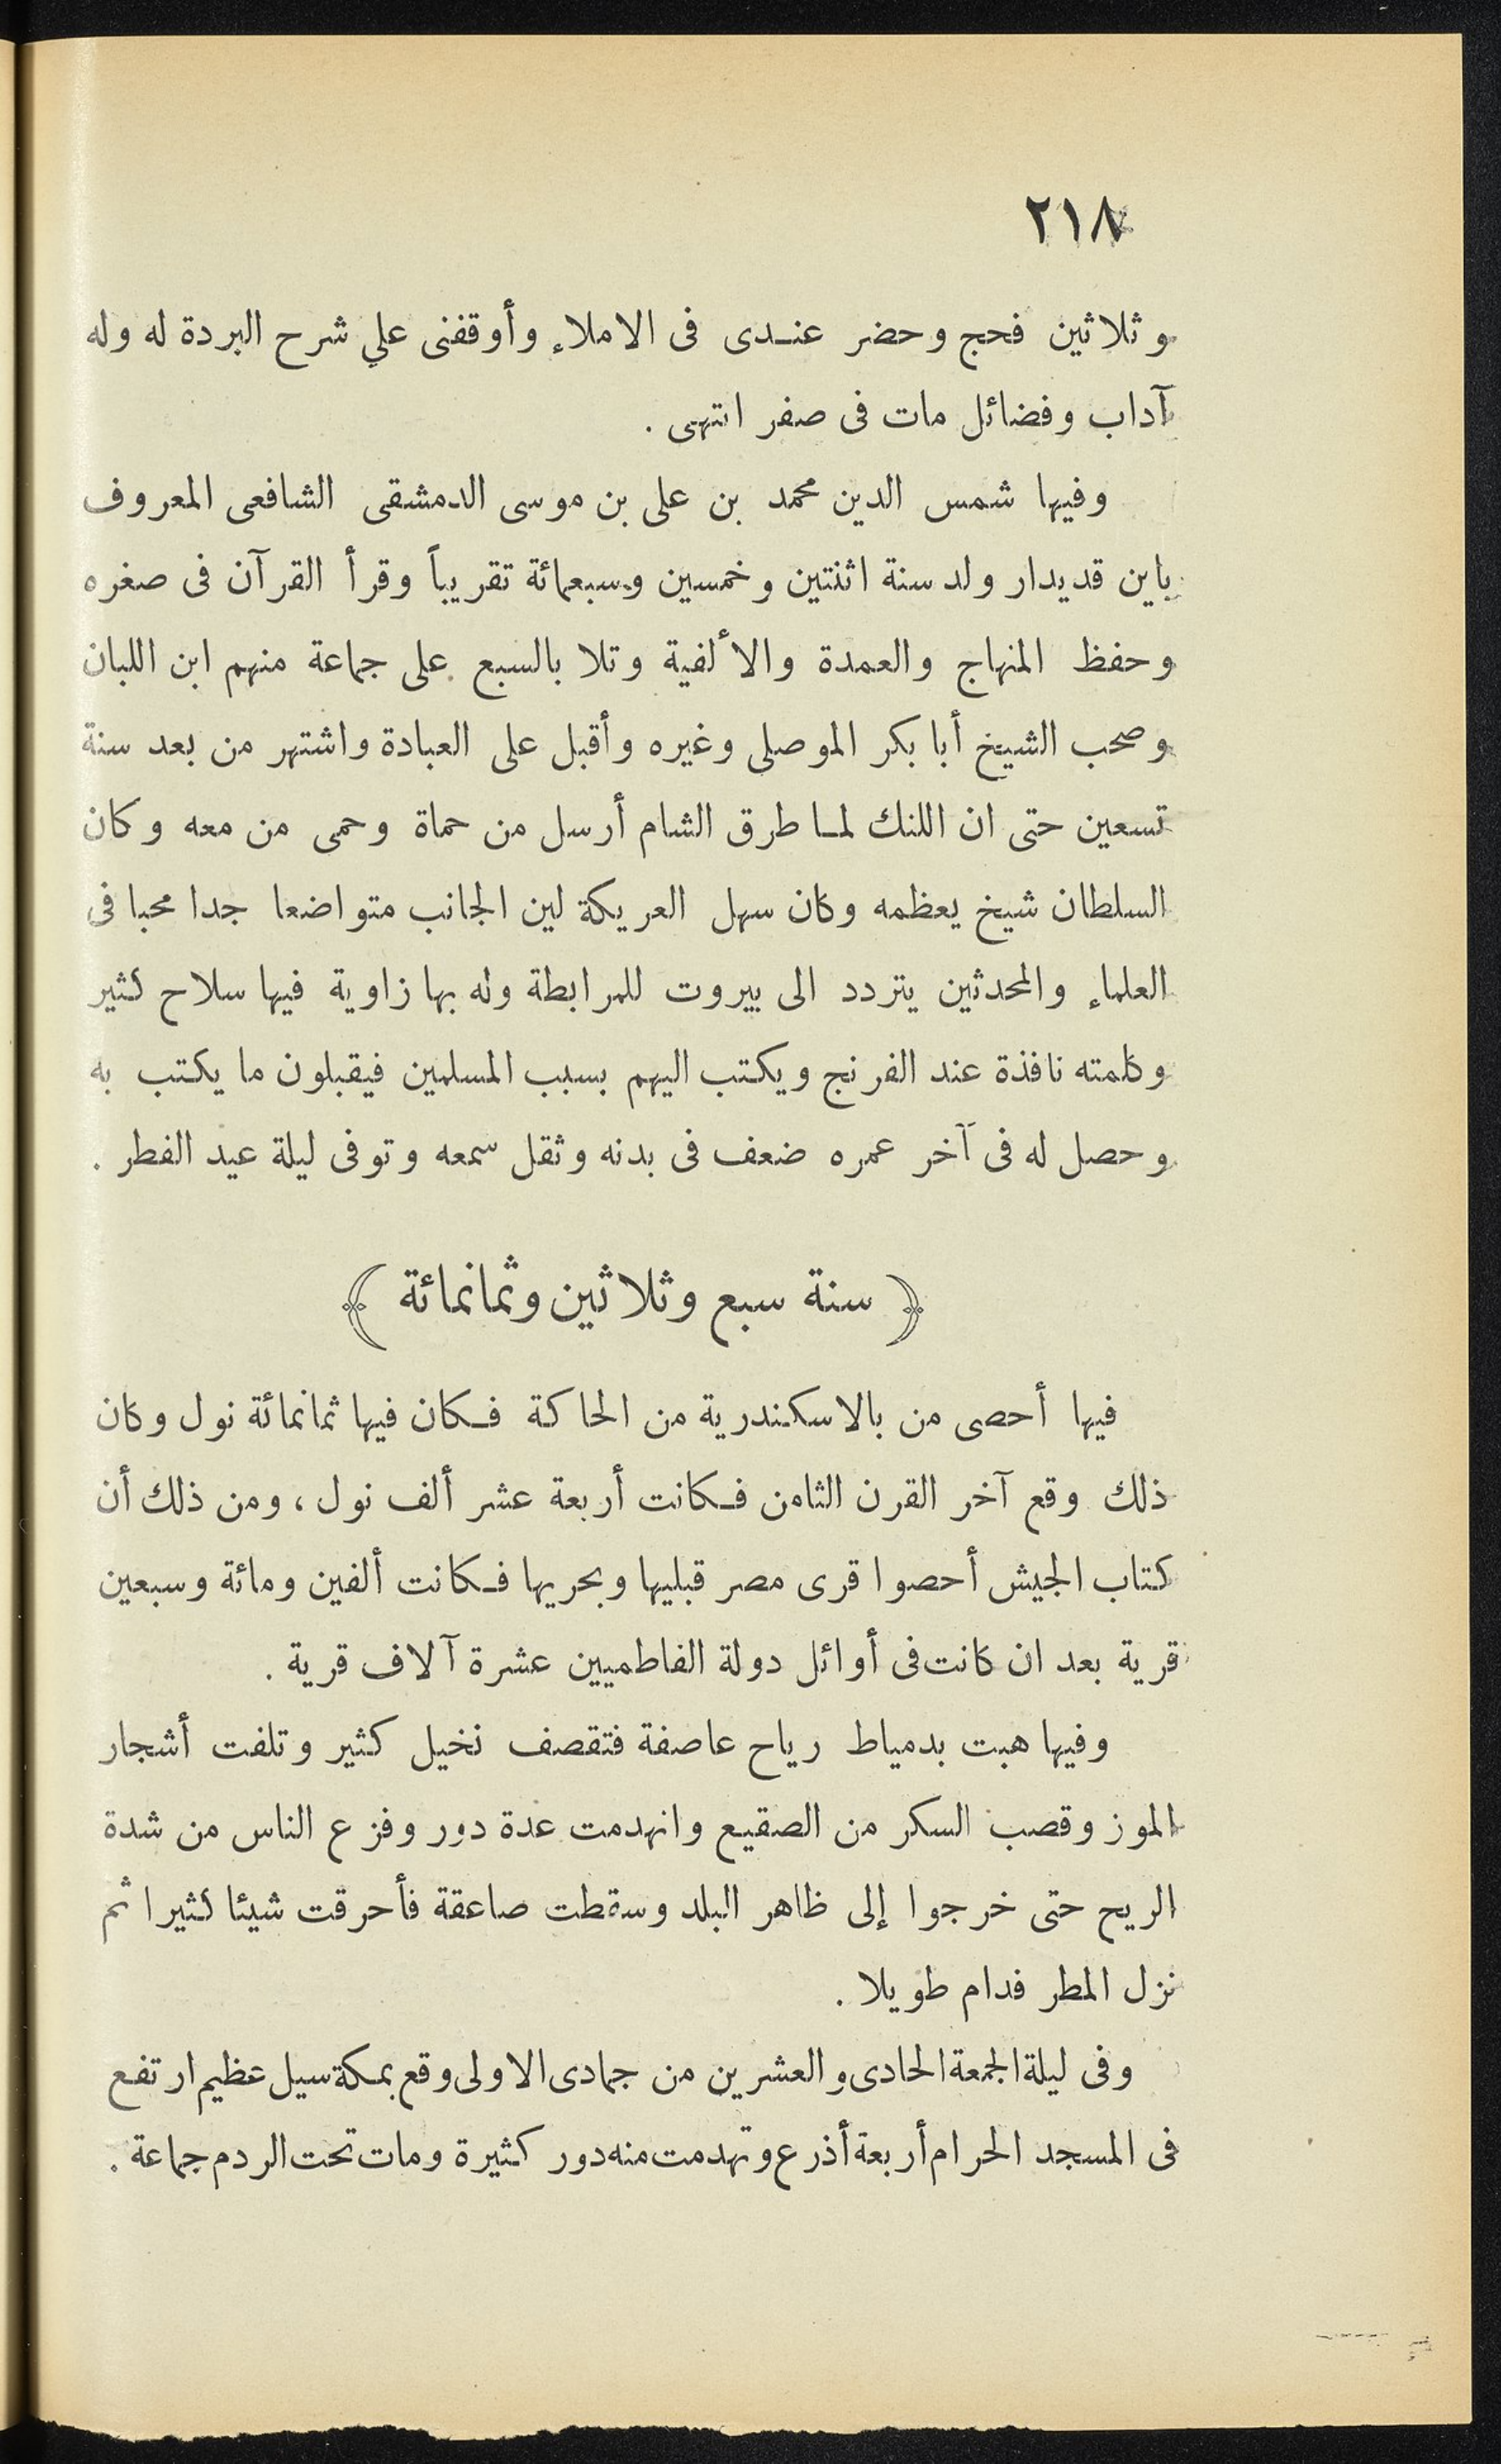 ٢١٨
وثلاثين فحج وحضر عندى فى الاملاء وأوقفنى علي شرح البردة له وله
آداب وفضائل مات فى صفر انتهى .
وفيها شمس الدين محمد بن على بن موسى الدمشقى الشافعى المعروف
باين قديدار ولد سنة اثنتين وخمسين وسبعمائة تقريباً وقرأ القرآن فى صغره
وحفظ المنهاج والعمدة والألفية وتلا بالسبع على جماعة منهم ابن اللبان
وصحب الشيخ أبا بكر الموصلى وغيره وأقبل على العبادة واشتهر من بعد سنة
تسعين حتى ان اللنك لما طرق الشام أرسل من حماة وحمى من معه وكان
السلطان شيخ يعظمه وكان سهل العريكة لين الجانب متواضعا جدا محبا فى
العلماء والمحدثين يتردد الى بيروت للمرابطة وله بها زاوية فيها سلاح كثير
وكلمته نافذة عند الفرنج ويكتب اليهم بسبب المسلمين فيقبلون ما يكتب به
وحصل له فى آخر عمره ضعف فى بدنه وثقل سمعه وتوفى ليلة عيد الفطر .
﴿ سنة سبع وثلاثين وثمانمائة ﴾
فيها أحصى من بالاسكندرية من الحاكة فكان فيها ثمانمائة نول وكان
ذلك وقع آخر القرن الثامن فكانت أربعة عشر ألف نول ، ومن ذلك أن
كتاب الجيش أحصوا قرى مصر قبليها وبحريها فكانت ألفين ومائة وسبعين
قرية بعد ان كانت فى أوائل دولة الفاطميين عشرة آلاف قرية .
وفيها هبت بدمياط رياح عاصفة فتقصف نخيل كثير وتلفت أشجار
الموز وقصب السكر من الصقيع وانهدمت عدة دور وفزع الناس من شدة
الريح حتى خرجوا إلى ظاهر البلد وسقطت صاعقة فأحرقت شيئا كثيرا ثم
نزل المطر فدام طويلا .
وفى ليلة الجمعة الحادى والعشرين من جمادى الاولى وقع بمكة سيل عظيم ارتفع
فى المسجد الحرام أربعة أذرع وتهدمت منه دور كثيرة ومات تحت الردم جماعة .